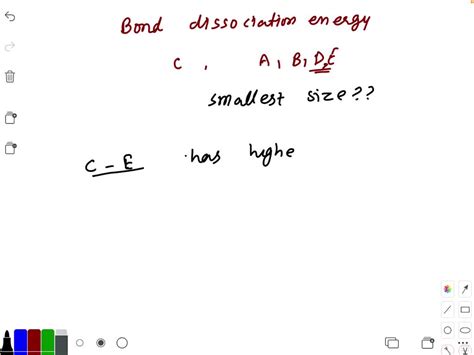 Bond dissociation energy
C, A, B, D, E
smallest size??
C - E has highe